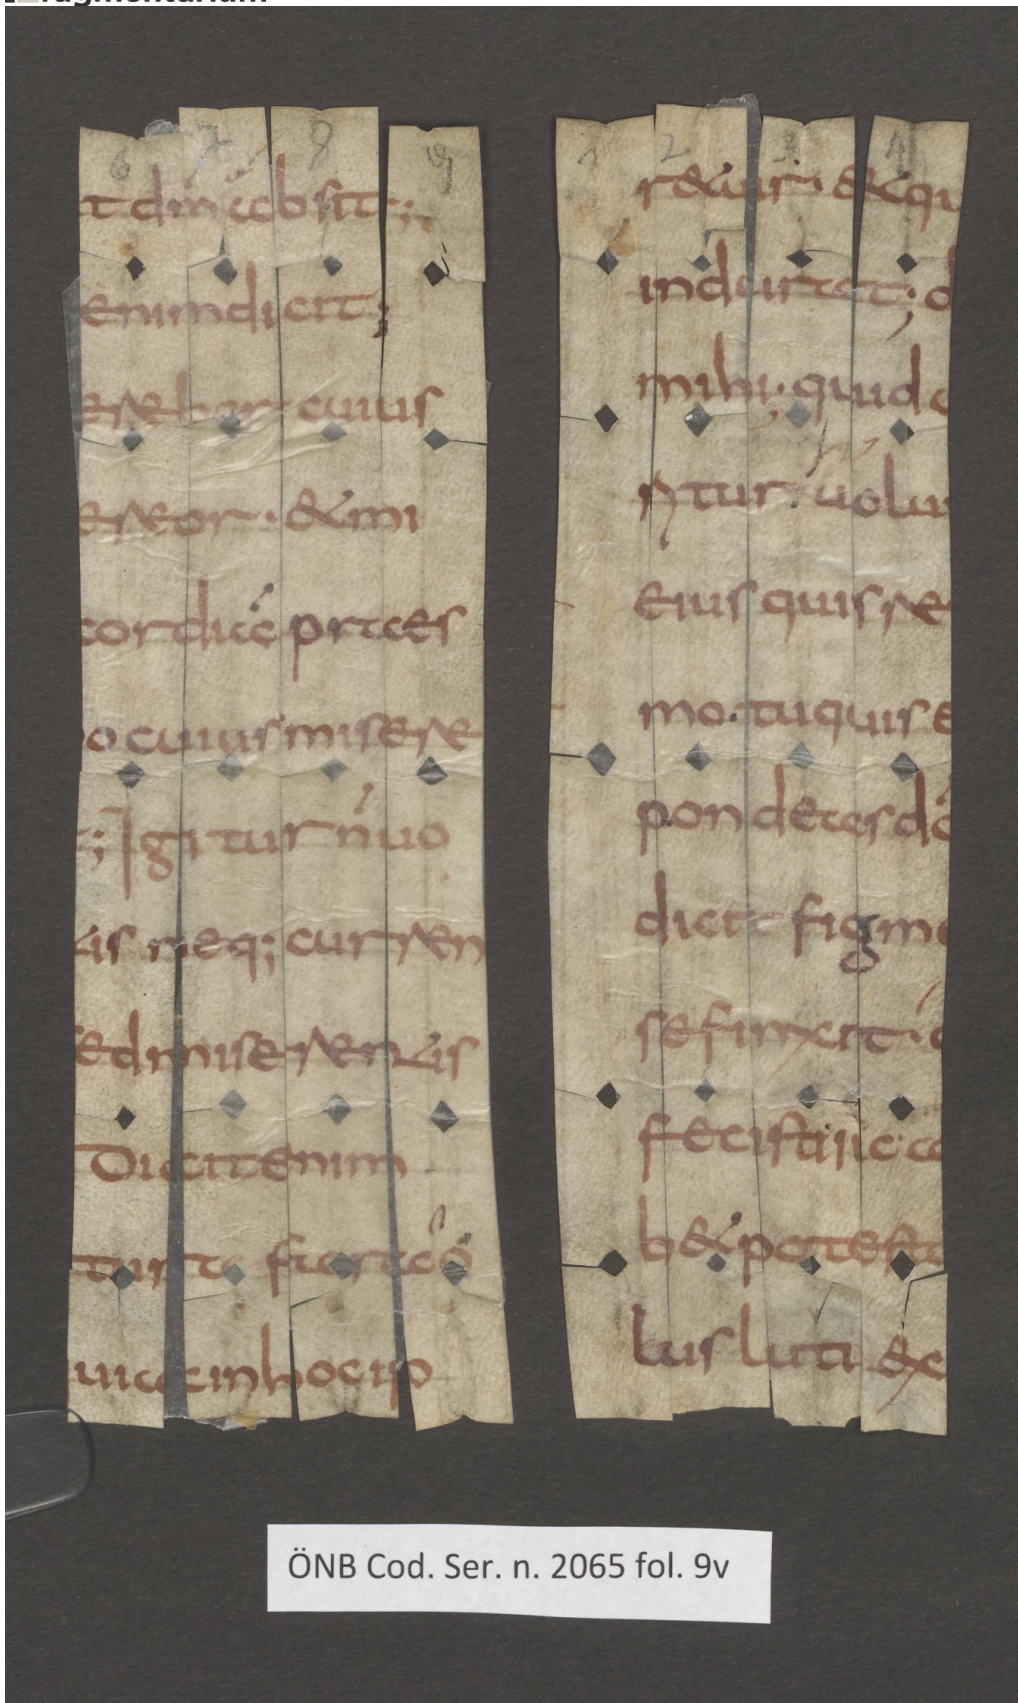 ragmentarium
6 7 8 9
t dm̄ absit;
enim dicit;
erebor cuius
ereor · & mi
cordiā praes
o cuius misere
; Igitur n̄ uo
tis neq; curren
ed miserentis
Dicit enim
tura faraō
uia in hoc ip
1 2 3 4
retur · & qu
indurat; d
mihi; quid
ritur · uolun
eius quis re
mo · tu quis e
pondeas dō
dicit figme
se finxit ·
fecisti sic · a
b& potesta
lus luti ex
ÖNB Cod. Ser. n. 2065 fol. 9v